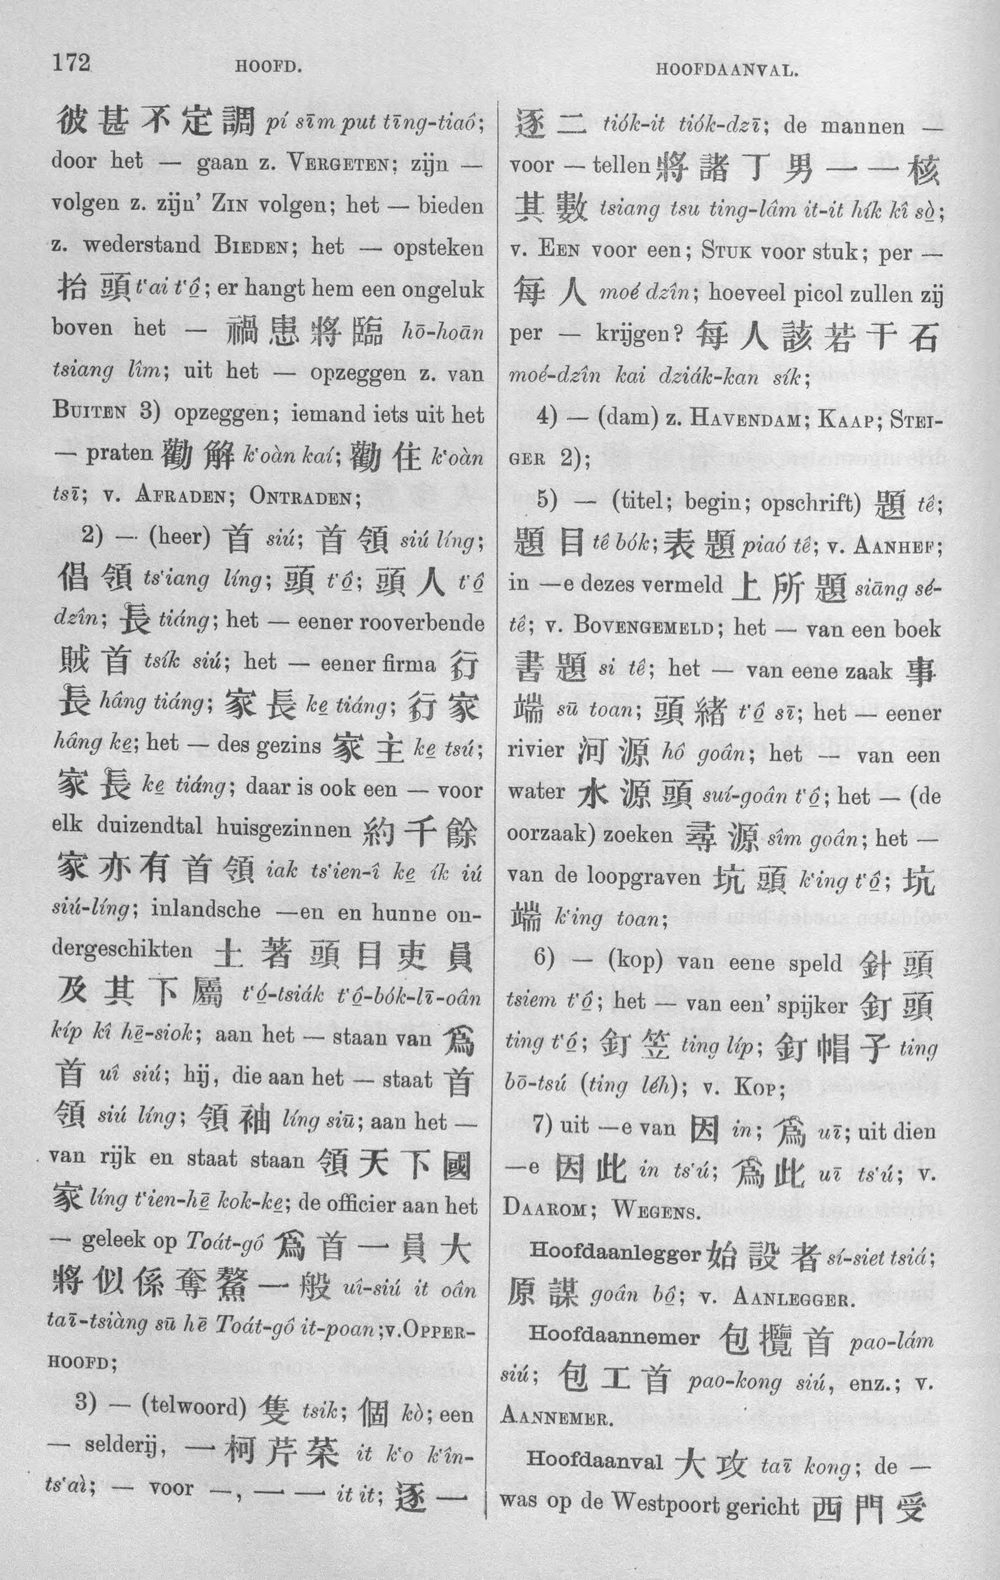 172
HOOFD.
HOOFDAANVAL.
彼甚不定調 pí sīm put tīng-tiaó;
door het — gaan z. VERGETEN; zijn —
volgen z. zijn' ZIN volgen; het — bieden
z. wederstand BIEDEN; het — opsteken
抬頭 t'ai t'ô; er hangt hem een ongeluk
boven het — 禍患將臨 hō-hoān
tsiang lîm; uit het — opzeggen z. van
BUITEN 3) opzeggen; iemand iets uit het
— praten 勸解 k'oàn kaí; 勸住 k'oàn
tsī; v. AFRADEN; ONTRADEN;
2) — (heer) 首 siú; 首領 siú líng;
倡領 ts'iang líng; 頭 t'ô; 頭人 t'ô
dzîn; 長 tiáng; het — eener rooverbende
賊首 tsík siú; het — eener firma 行
長 hâng tiáng; 家長 ke tiáng; 行家
hâng ke; het — des gezins 家主 ke tsú;
家長 ke tiáng; daar is ook een — voor
elk duizendtal huisgezinnen 約千餘
家亦有首領 iak ts'ien-î ke ík iú
siú-líng; inlandsche —en en hunne on-
dergeschikten 土著頭目吏員
及其下屬 t'ó-tsiák t'ô-bók-lī-oân
kíp kî hē-siok; aan het — staan van 爲
首 uî siú; hij, die aan het — staat 首
領 siú líng; 領袖 líng siū; aan het —
van rijk en staat staan 領天下國
家 líng t'ien-hē kok-ke; de officier aan het
— geleek op Toát-gô 爲首一員大
將似係奪鰲一般 uî-siú it oân
taī-tsiàng sū hē Toát-gô it-poan; v. OPPER-
HOOFD;
3) — (telwoord) 隻 tsik; 個 kò; een
— selderij, 一柯芹菜 it k'o k'în-
ts'aì; — voor —, 一一 it it; 逐一
逐二 tiók-it tiók-dzī; de mannen —
voor — tellen 將諸丁男一一核
其數 tsiang tsu ting-lâm it-it hík kî sò;
v. EEN voor een; STUK voor stuk; per —
每人 moé dzîn; hoeveel picol zullen zij
per — krijgen? 每人該若干石
moé-dzîn kai dziák-kan sík;
4) — (dam) z. HAVENDAM; KAAP; STEI-
GER 2);
5) — (titel; begin; opschrift) 題 tê;
題目 tê bók; 表題 piaó tê; v. AANHEF;
in —e dezes vermeld 上所題 siāng sé-
tê; v. BOVENGEMELD; het — van een boek
書題 si tê; het — van eene zaak 事
端 sū toan; 頭緒 t'ô sī; het — eener
rivier 河源 hô goân; het — van een
water 水源頭 suí-goân t'ô; het — (de
oorzaak) zoeken 尋源 sîm goân; het —
van de loopgraven 坑頭 k'ing t'ô; 坑
端 k'ing toan;
6) — (kop) van eene speld 針頭
tsiem t'ô; het — van een' spijker 釘頭
ting t'ô; 釘笠 ting líp; 釘帽子 ting
bō-tsú (ting léh); v. KOP;
7) uit —e van 因 in; 爲 uī; uit dien
—e 因此 in ts'ú; 爲此 uī ts'ú; v.
DAAROM; WEGENS.
Hoofdaanlegger 始設者 sí-siet tsiá;
原謀 goân bô; v. AANLEGGER.
Hoofdaannemer 包攬首 pao-lám
siú; 包工首 pao-kong siú, enz.; v.
AANNEMER.
Hoofdaanval 大攻 taī kong; de —
was op de Westpoort gericht 西門受